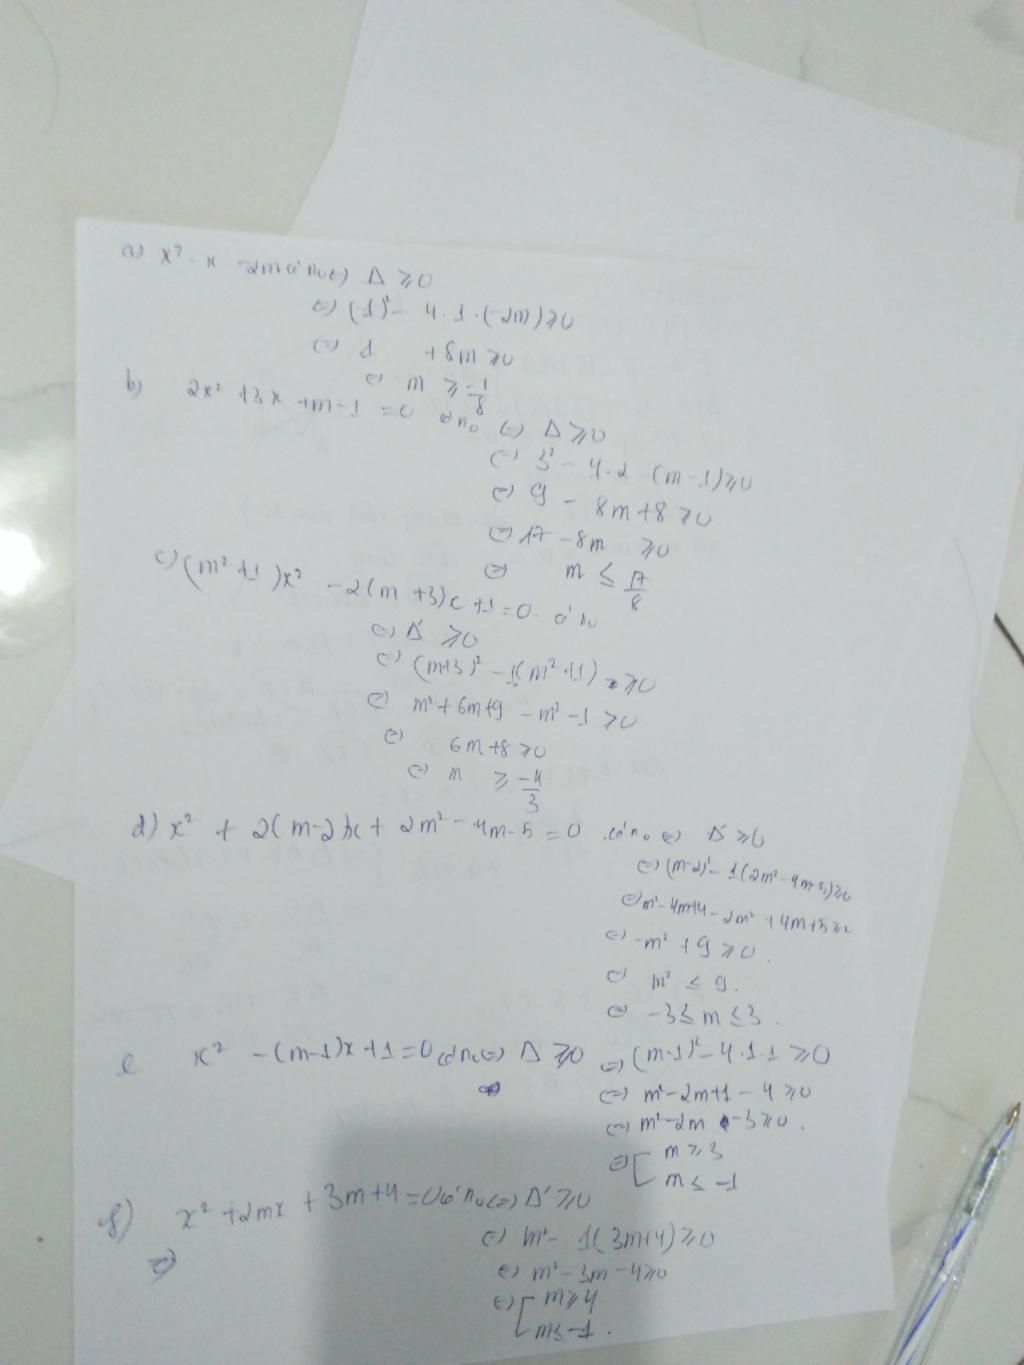 a) x² - x - 2m có n₀ (=) Δ ≥ 0
(=) (-1)² - 4.1.(-2m) ≥ 0
(=) 1 + 8m ≥ 0
(=) m ≥ -1/8
b) 2x² + 3x + m - 1 = 0 có n₀ (=) Δ ≥ 0
(=) 3² - 4.2.(m-1) ≥ 0
(=) 9 - 8m + 8 ≥ 0
(=) 17 - 8m ≥ 0
(=) m ≤ 17/8
c) (m² + 1)x² - 2(m + 3)x + 1 = 0. có n₀
(=) Δ' ≥ 0
(=) (m+3)² - 1(m² + 1) ≥ 0
(=) m² + 6m + 9 - m² - 1 ≥ 0
(=) 6m + 8 ≥ 0
(=) m ≥ -4/3
d) x² + 2(m-2)x + 2m² - 4m - 5 = 0 có n₀ (=) Δ' ≥ 0
(=) (m-2)² - 1(2m² - 4m - 5) ≥ 0
(=) m² - 4m + 4 - 2m² + 4m + 5 ≥
(=) -m² + 9 ≥ 0.
(=) m² ≤ 9.
(=) -3 ≤ m ≤ 3.
e x² - (m-1)x + 1 = 0 có n₀ (=) Δ ≥ 0 (=) (m-1)² - 4.1.1 ≥ 0
(=) m² - 2m + 1 - 4 ≥ 0
(=) m² - 2m - 3 ≥ 0.
(=) [ m ≥ 3
m ≤ -1
f) x² + 2mx + 3m + 4 = 0 có n₀ (=) Δ' ≥ 0
(=) m² - 1(3m+4) ≥ 0
(=) m² - 3m - 4 ≥ 0
(=) [ m ≥ 4
m ≤ -1.